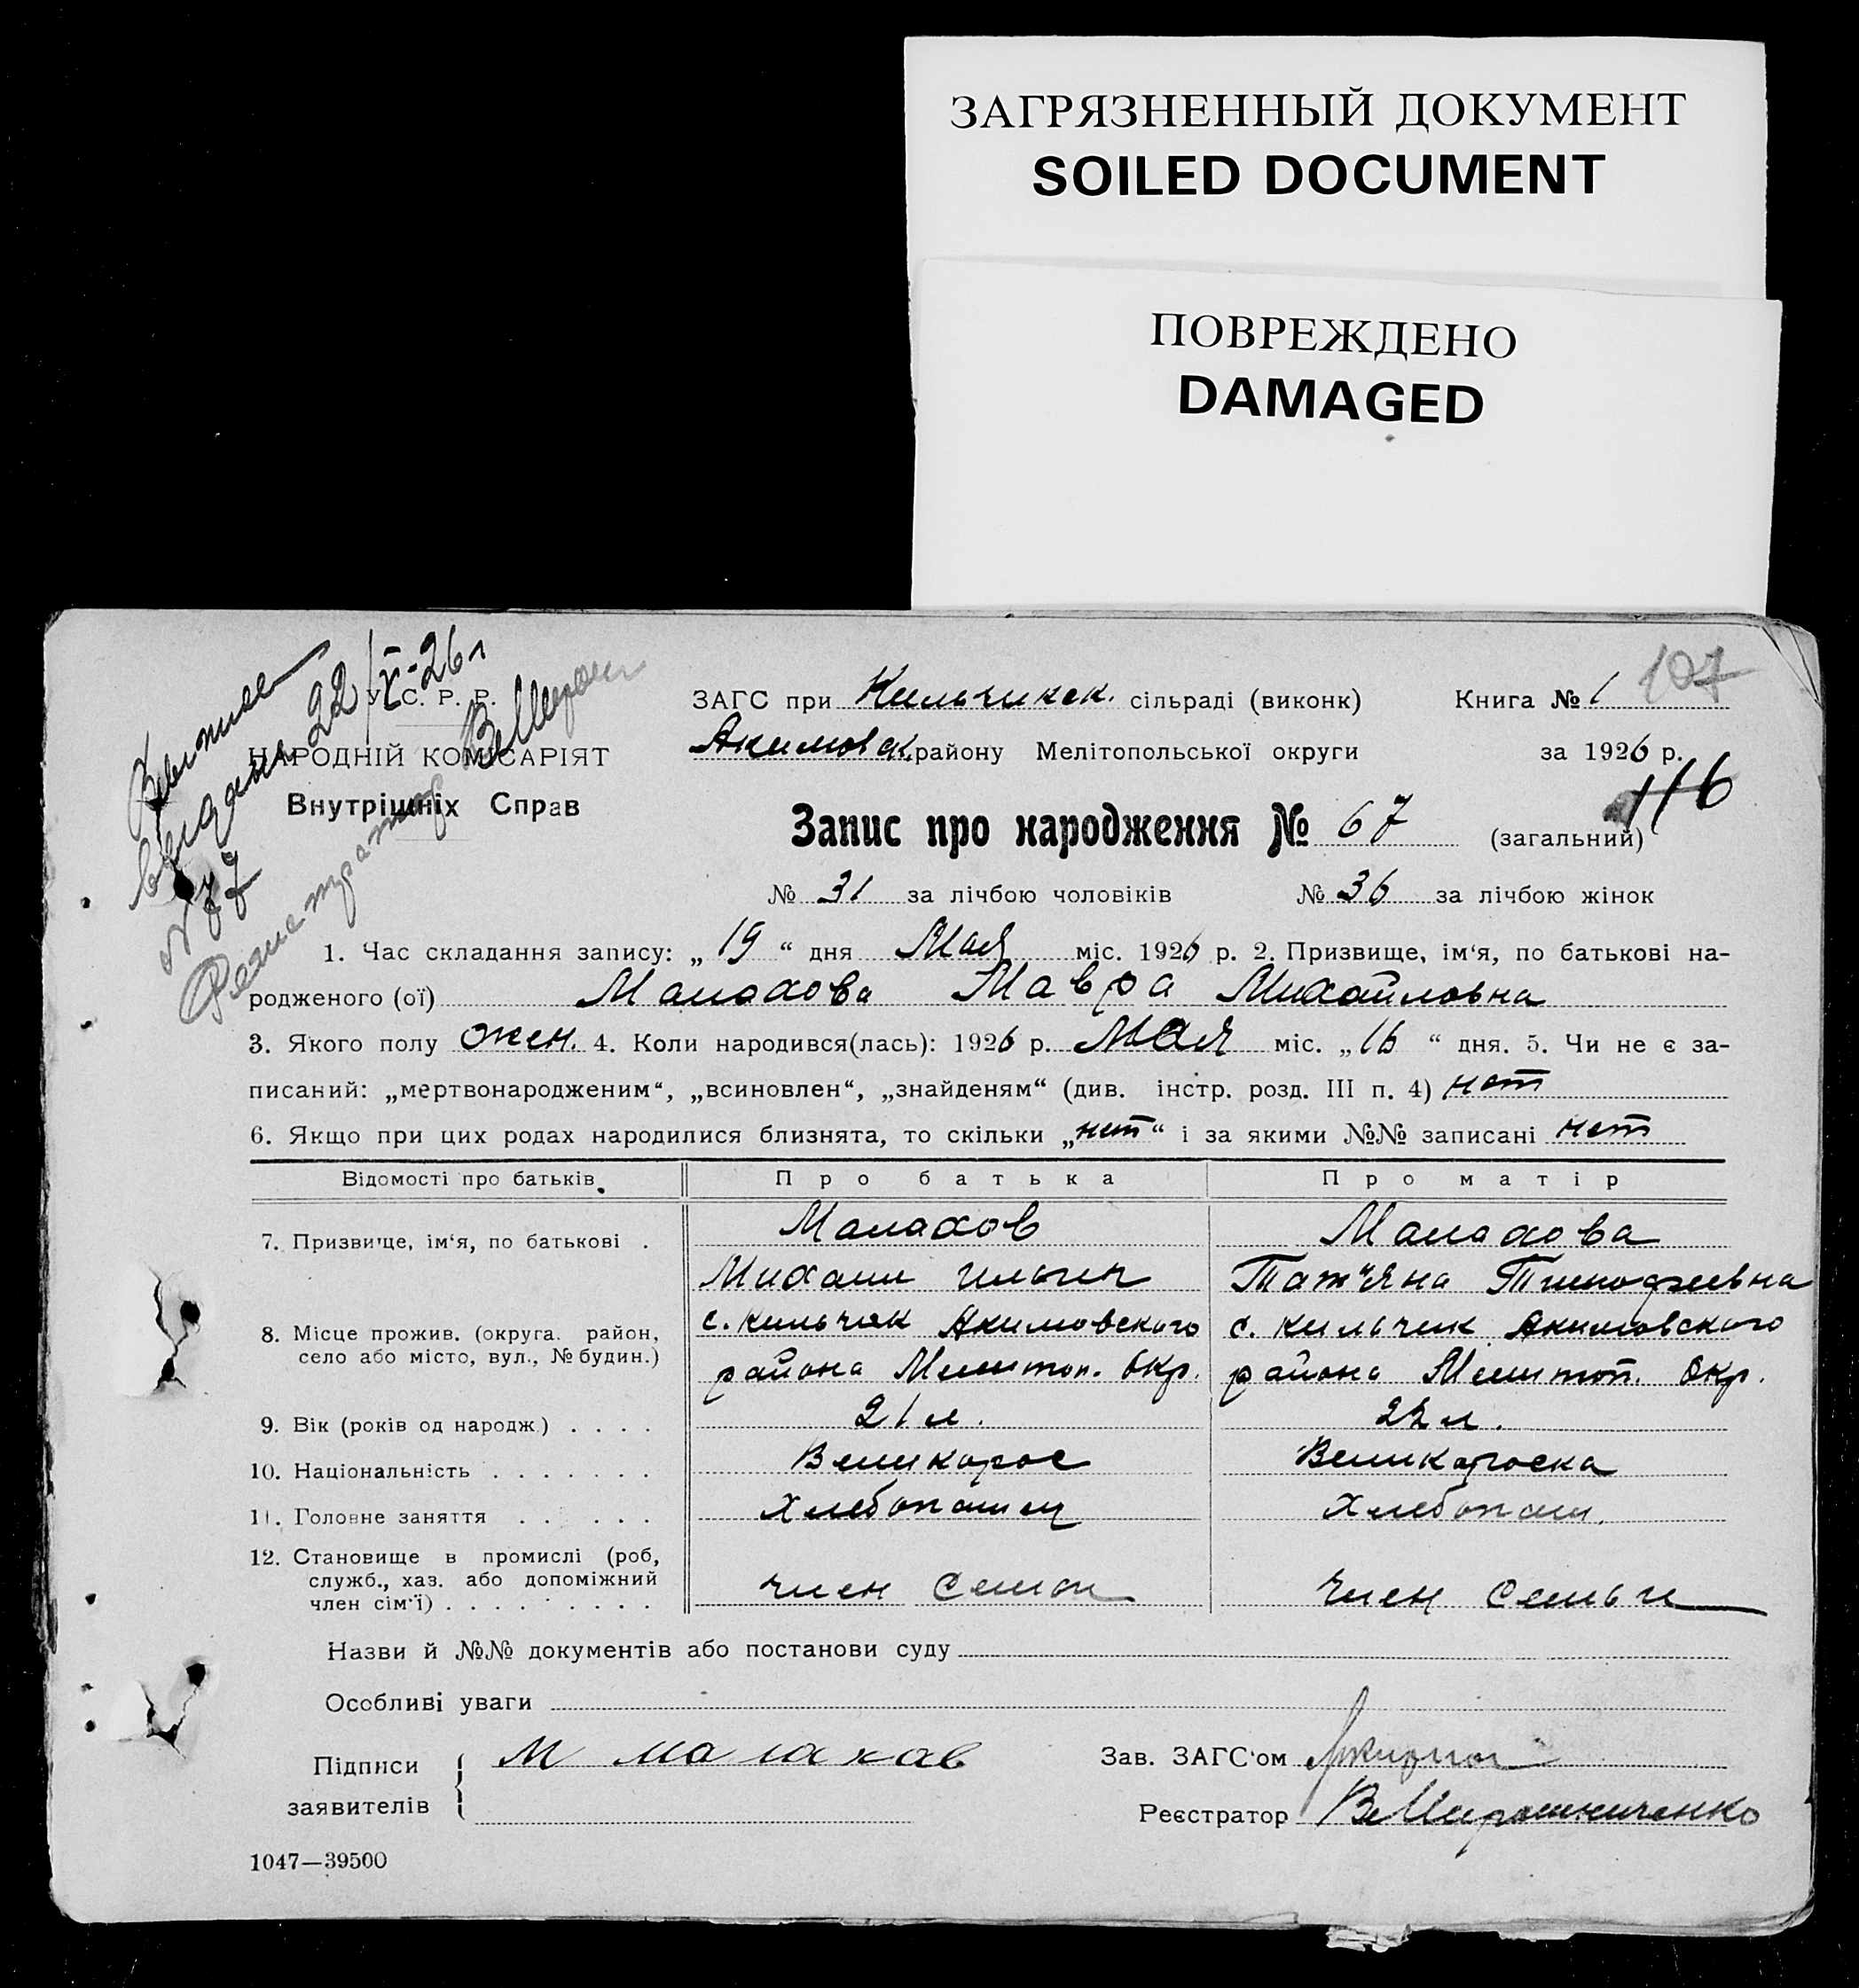 ЗАГРЯЗНЕННЫЙ ДОКУМЕНТ
SOILED DOCUMENT
ПОВРЕЖДЕНО
DAMAGED
107
У. С. Р. Р.
НАРОДНІЙ КОМІСАРІЯТ
Внутрішніх Справ
выдана 22/V-26 г
N 77
Регистратор ВМирош
ЗАГС при Кильчикск. сільраді (виконк) Книга № 1
Акимовск. району Мелітопольської округи за 1926 р.
116
Запис про народження № 67 (загальний)
№ 31 за лічбою чоловіків № 36 за лічбою жінок
1. Час складання запису: „ 19 “ дня Мая міс. 1926 р. 2. Призвище, ім‘я, по батькові на-
родженого (ої) Малахова Мавра Михайловна
3. Якого полу жен. 4. Коли народився(лась): 1926 р. Мая міс. „ 16 “ дня. 5. Чи не є за-
писаний: „мертвонародженим“, „всиновлен“, „знайденям“ (див. інстр. розд. III п. 4) нет
6. Якщо при цих родах народилися близнята, то скільки „нет“ і за якими №№ записані нет
Відомості про батьків Про батька Про матір
7. Призвище, ім‘я, по батькові . Малахов Малахова
Михаил Ильич Тат"яна Тимофеевна
8. Місце прожив. (округа. район, с. Кильчик Акимовского с. Кильчик Акимовского
село або місто, вул., № будин.) района Мелитоп. Окр. района Мелитоп. Окр.
9. Вік (років од народж.) . . . . 21 л. 22 л.
10. Національність . . . . . . . Великорос Великороска
11. Головне заняття . . . . . . Хлебопашец Хлебопаш.
12. Становище в промислі (роб,
служб., хаз. або допоміжний член семьи член семьи
член сім‘ї) . . . . . . . . .
Назви й №№ документів або постанови суду
Особливі уваги
Підписи М малахав Зав. ЗАГС‘ом
заявителів Реєстратор ВМирошниченко
1047—39500